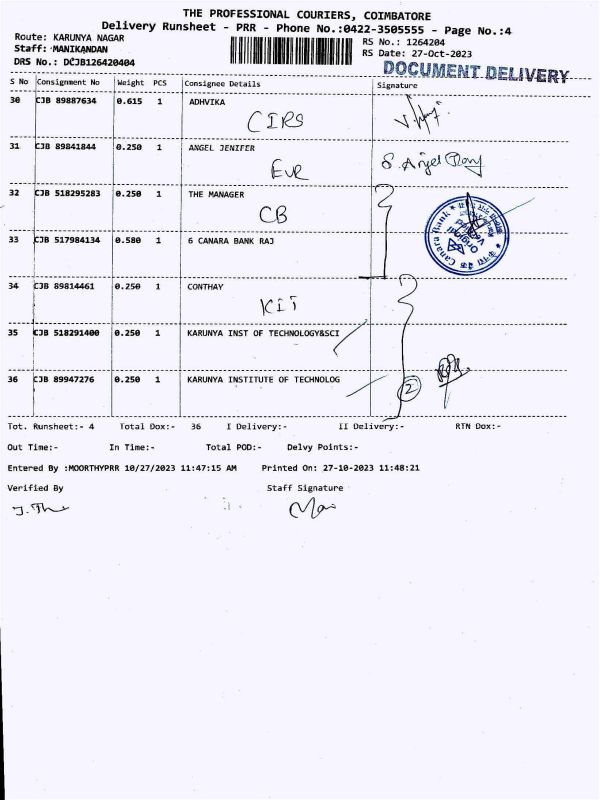 THE PROFESSIONAL COURIERS, COIMBATORE
Delivery Runsheet - PRR - Phone No.:0422-3505555 - Page No.:4
Route: KARUNYA NAGAR
RS No.: 1264204
Staff: MANIKANDAN
RS Date: 27-Oct-2023
DRS No.: DCJB126420404
DOCUMENT DELIVERY
S No Consignment No Weight PCS Consignee Details Signature
30 CJB 89887634 0.615 1 ADHVIKA
CIRS
31 CJB 89841844 0.250 1 ANGEL JENIFER
EVR
32 CJB 518295283 0.250 1 THE MANAGER
CB
Canara Bank
33 CJB 517984134 0.580 1 6 CANARA BANK RAJ
34 CJB 89814461 0.250 1 CONTHAY
KIT
35 CJB 518291400 0.250 1 KARUNYA INST OF TECHNOLOGY&SCI
36 CJB 89947276 0.250 1 KARUNYA INSTITUTE OF TECHNOLOG
2
Tot. Runsheet:- 4 Total Dox:- 36 I Delivery:- II Delivery:- RTN Dox:-
Out Time:- In Time:- Total POD:- Delvy Points:-
Entered By :MOORTHYPRR 10/27/2023 11:47:15 AM Printed On: 27-10-2023 11:48:21
Verified By Staff Signature